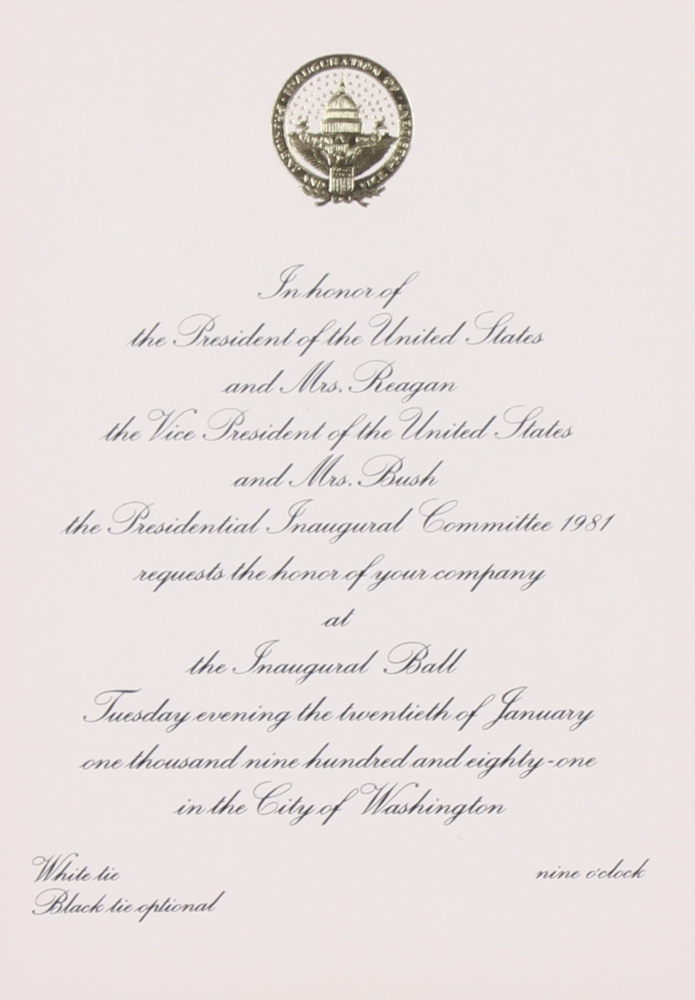 INAUGURATION OF PRESIDENT AND VICE PRESIDENT
In honor of
the President of the United States
and Mrs. Reagan
the Vice President of the United States
and Mrs. Bush
the Presidential Inaugural Committee 1981
requests the honor of your company
at
the Inaugural Ball
Tuesday evening the twentieth of January
one thousand nine hundred and eighty-one
in the City of Washington
White tie
Black tie optional
nine o'clock